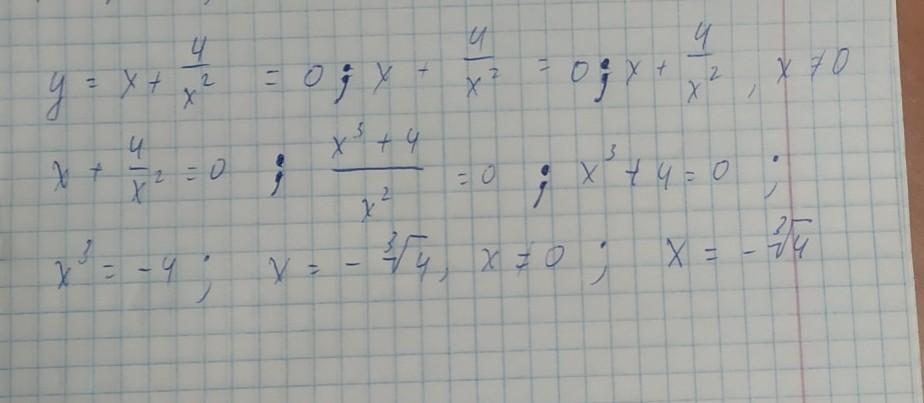 y = x + 4/x² = 0 ; x + 4/x² = 0 ; x + 4/x² , x ≠ 0
x + 4/x² = 0 ; (x³ + 4)/x² = 0 ; x³ + 4 = 0 ;
x³ = -4 ; x = -∛4, x ≠ 0 ; x = -∛4